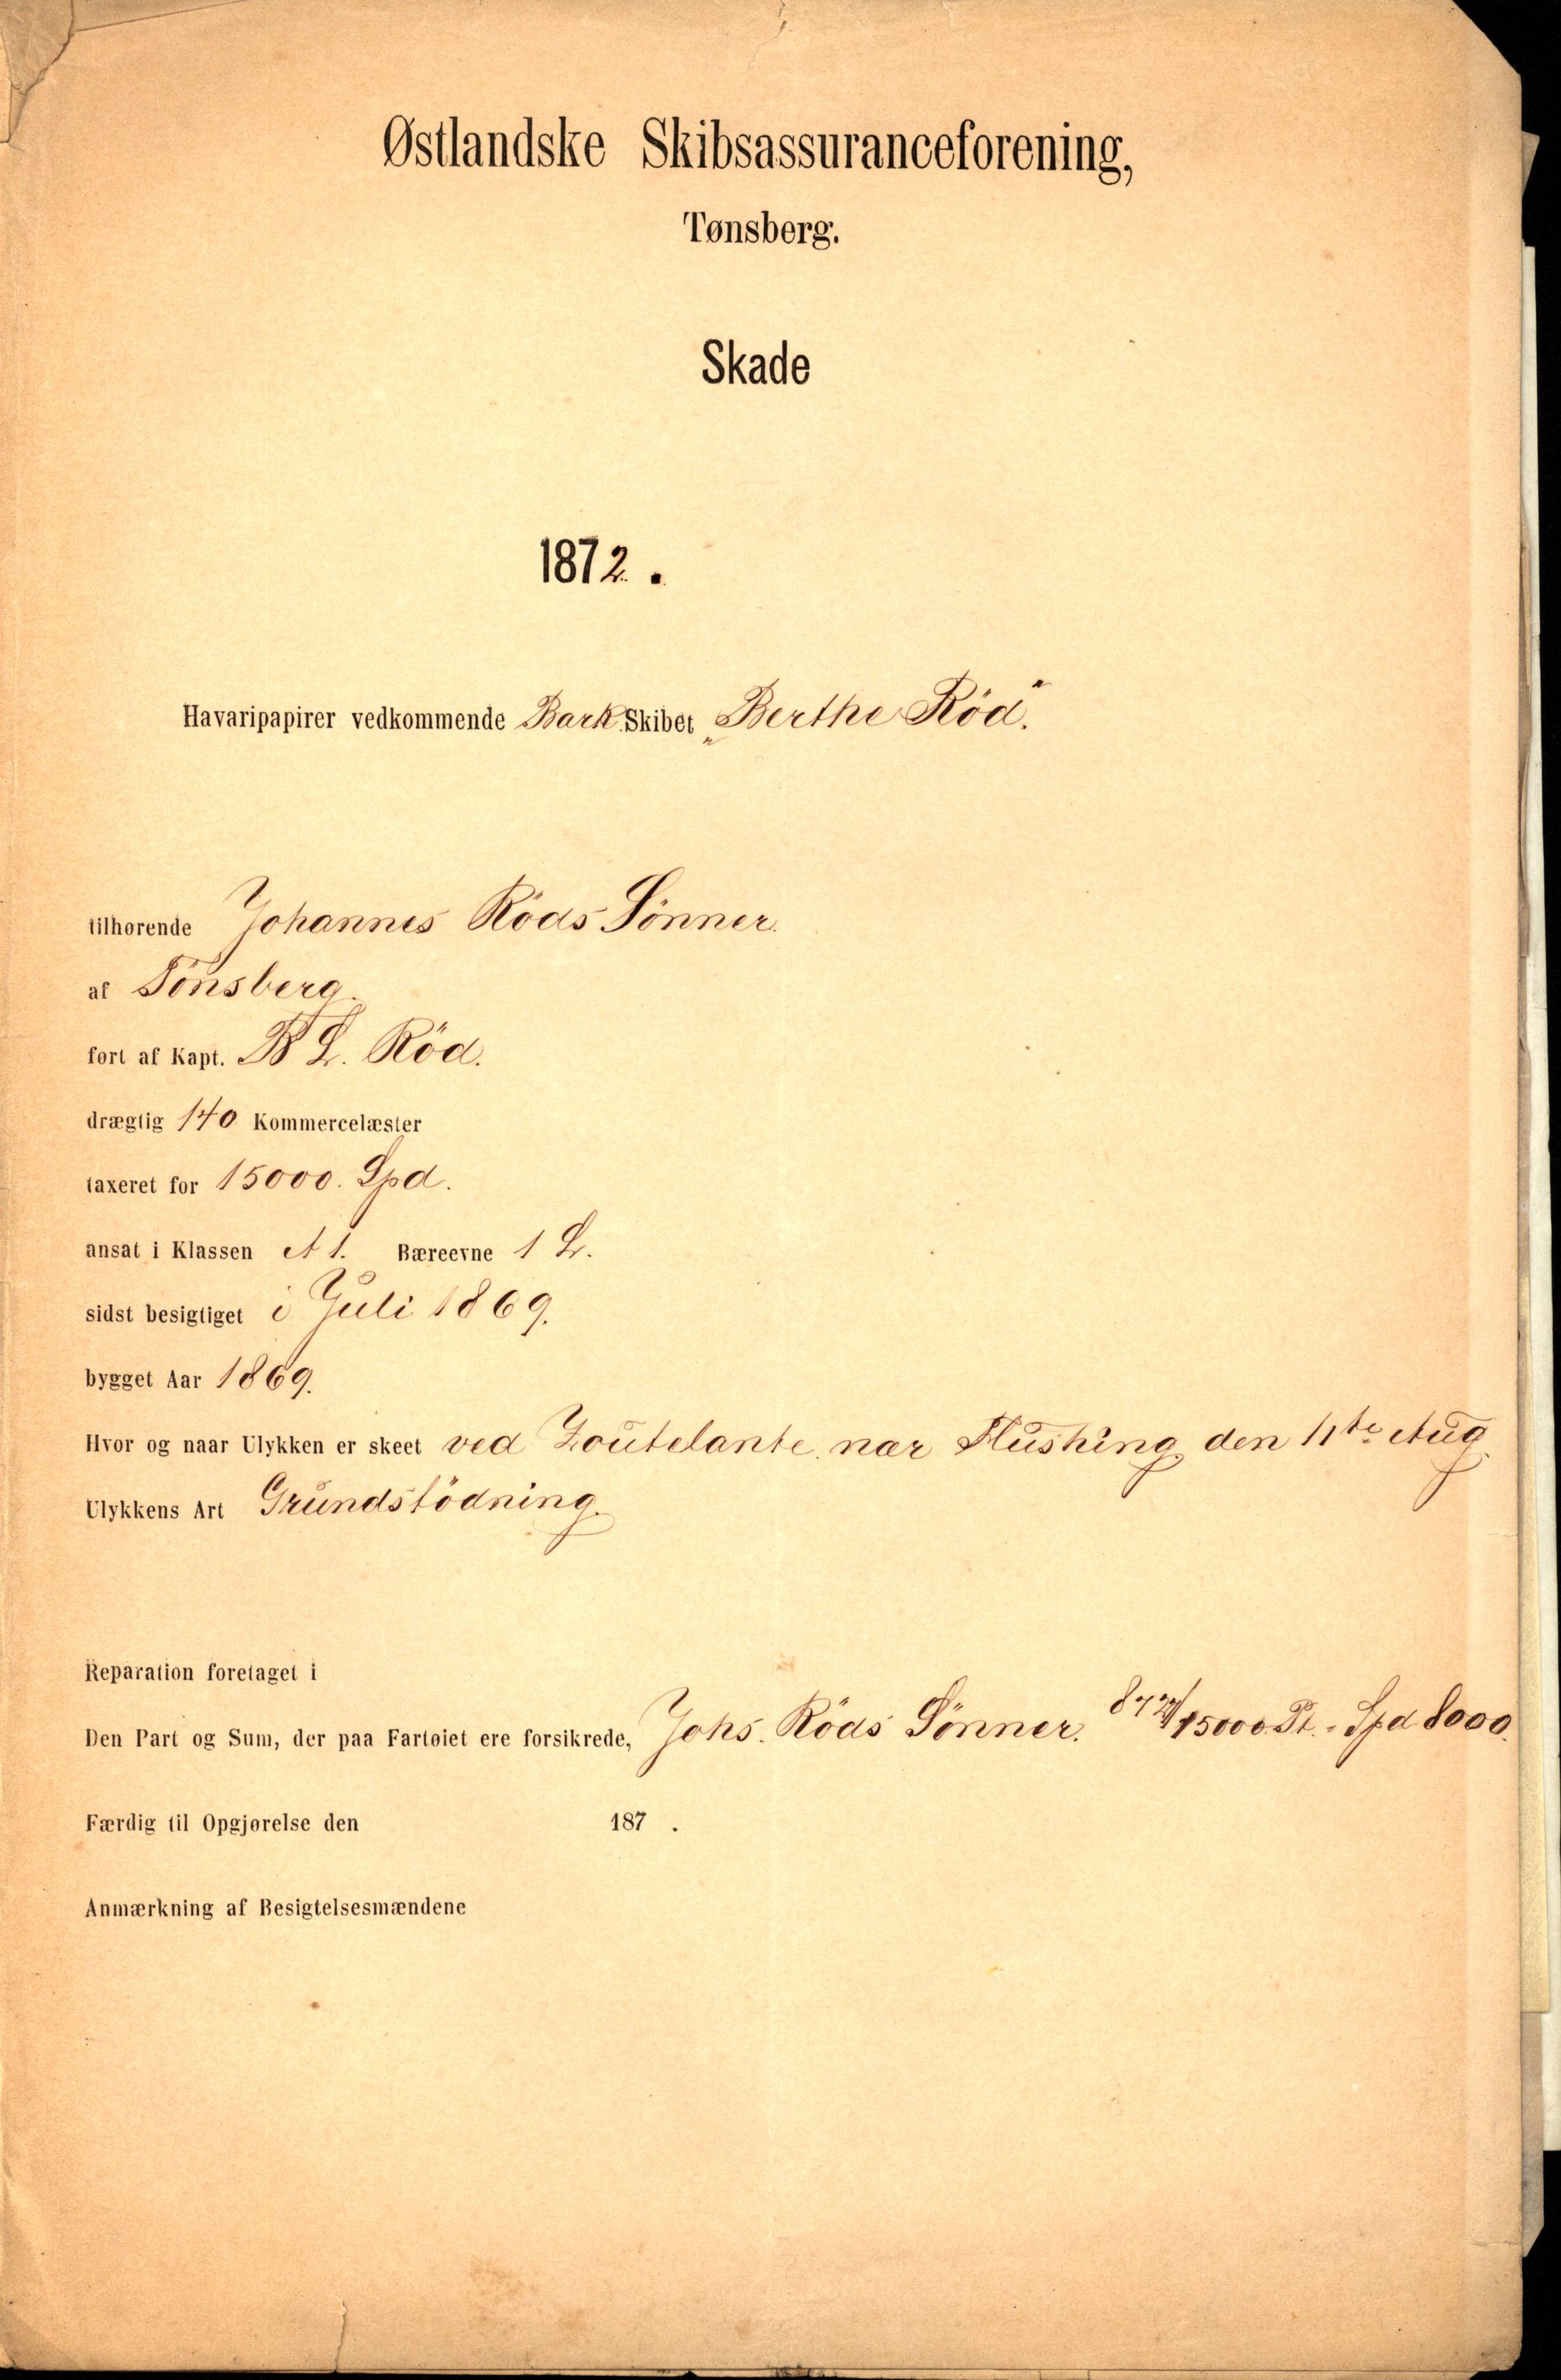 Østlandske Skibsassuranceforening,
Tønsberg.
Skade
1872.
Havaripapirer vedkommende Bark Skibet „Berthe Röd".
tilhørende Johannes Röds Sönner.
af Tönsberg.
ført af Kapt. B L. Röd.
drægtig 140 Kommercelæster
taxeret for 15000. Spd.
ansat i Klassen A 1. Bæreevne 1 L.
sidst besigtiget i Juli 1869.
bygget Aar 1869.
Hvor og naar Ulykken er skeet ved Zoutelante nær Flushing den 11te Aug.
Ulykkens Art Grundstödning.
Reparation foretaget i
Den Part og Sum, der paa Fartøiet ere forsikrede, Johs. Röds Sönner. /15000 Pt. = Spd 8000.
Færdig til Opgjørelse den 187 .
Anmærkning af Besigtelsesmændene